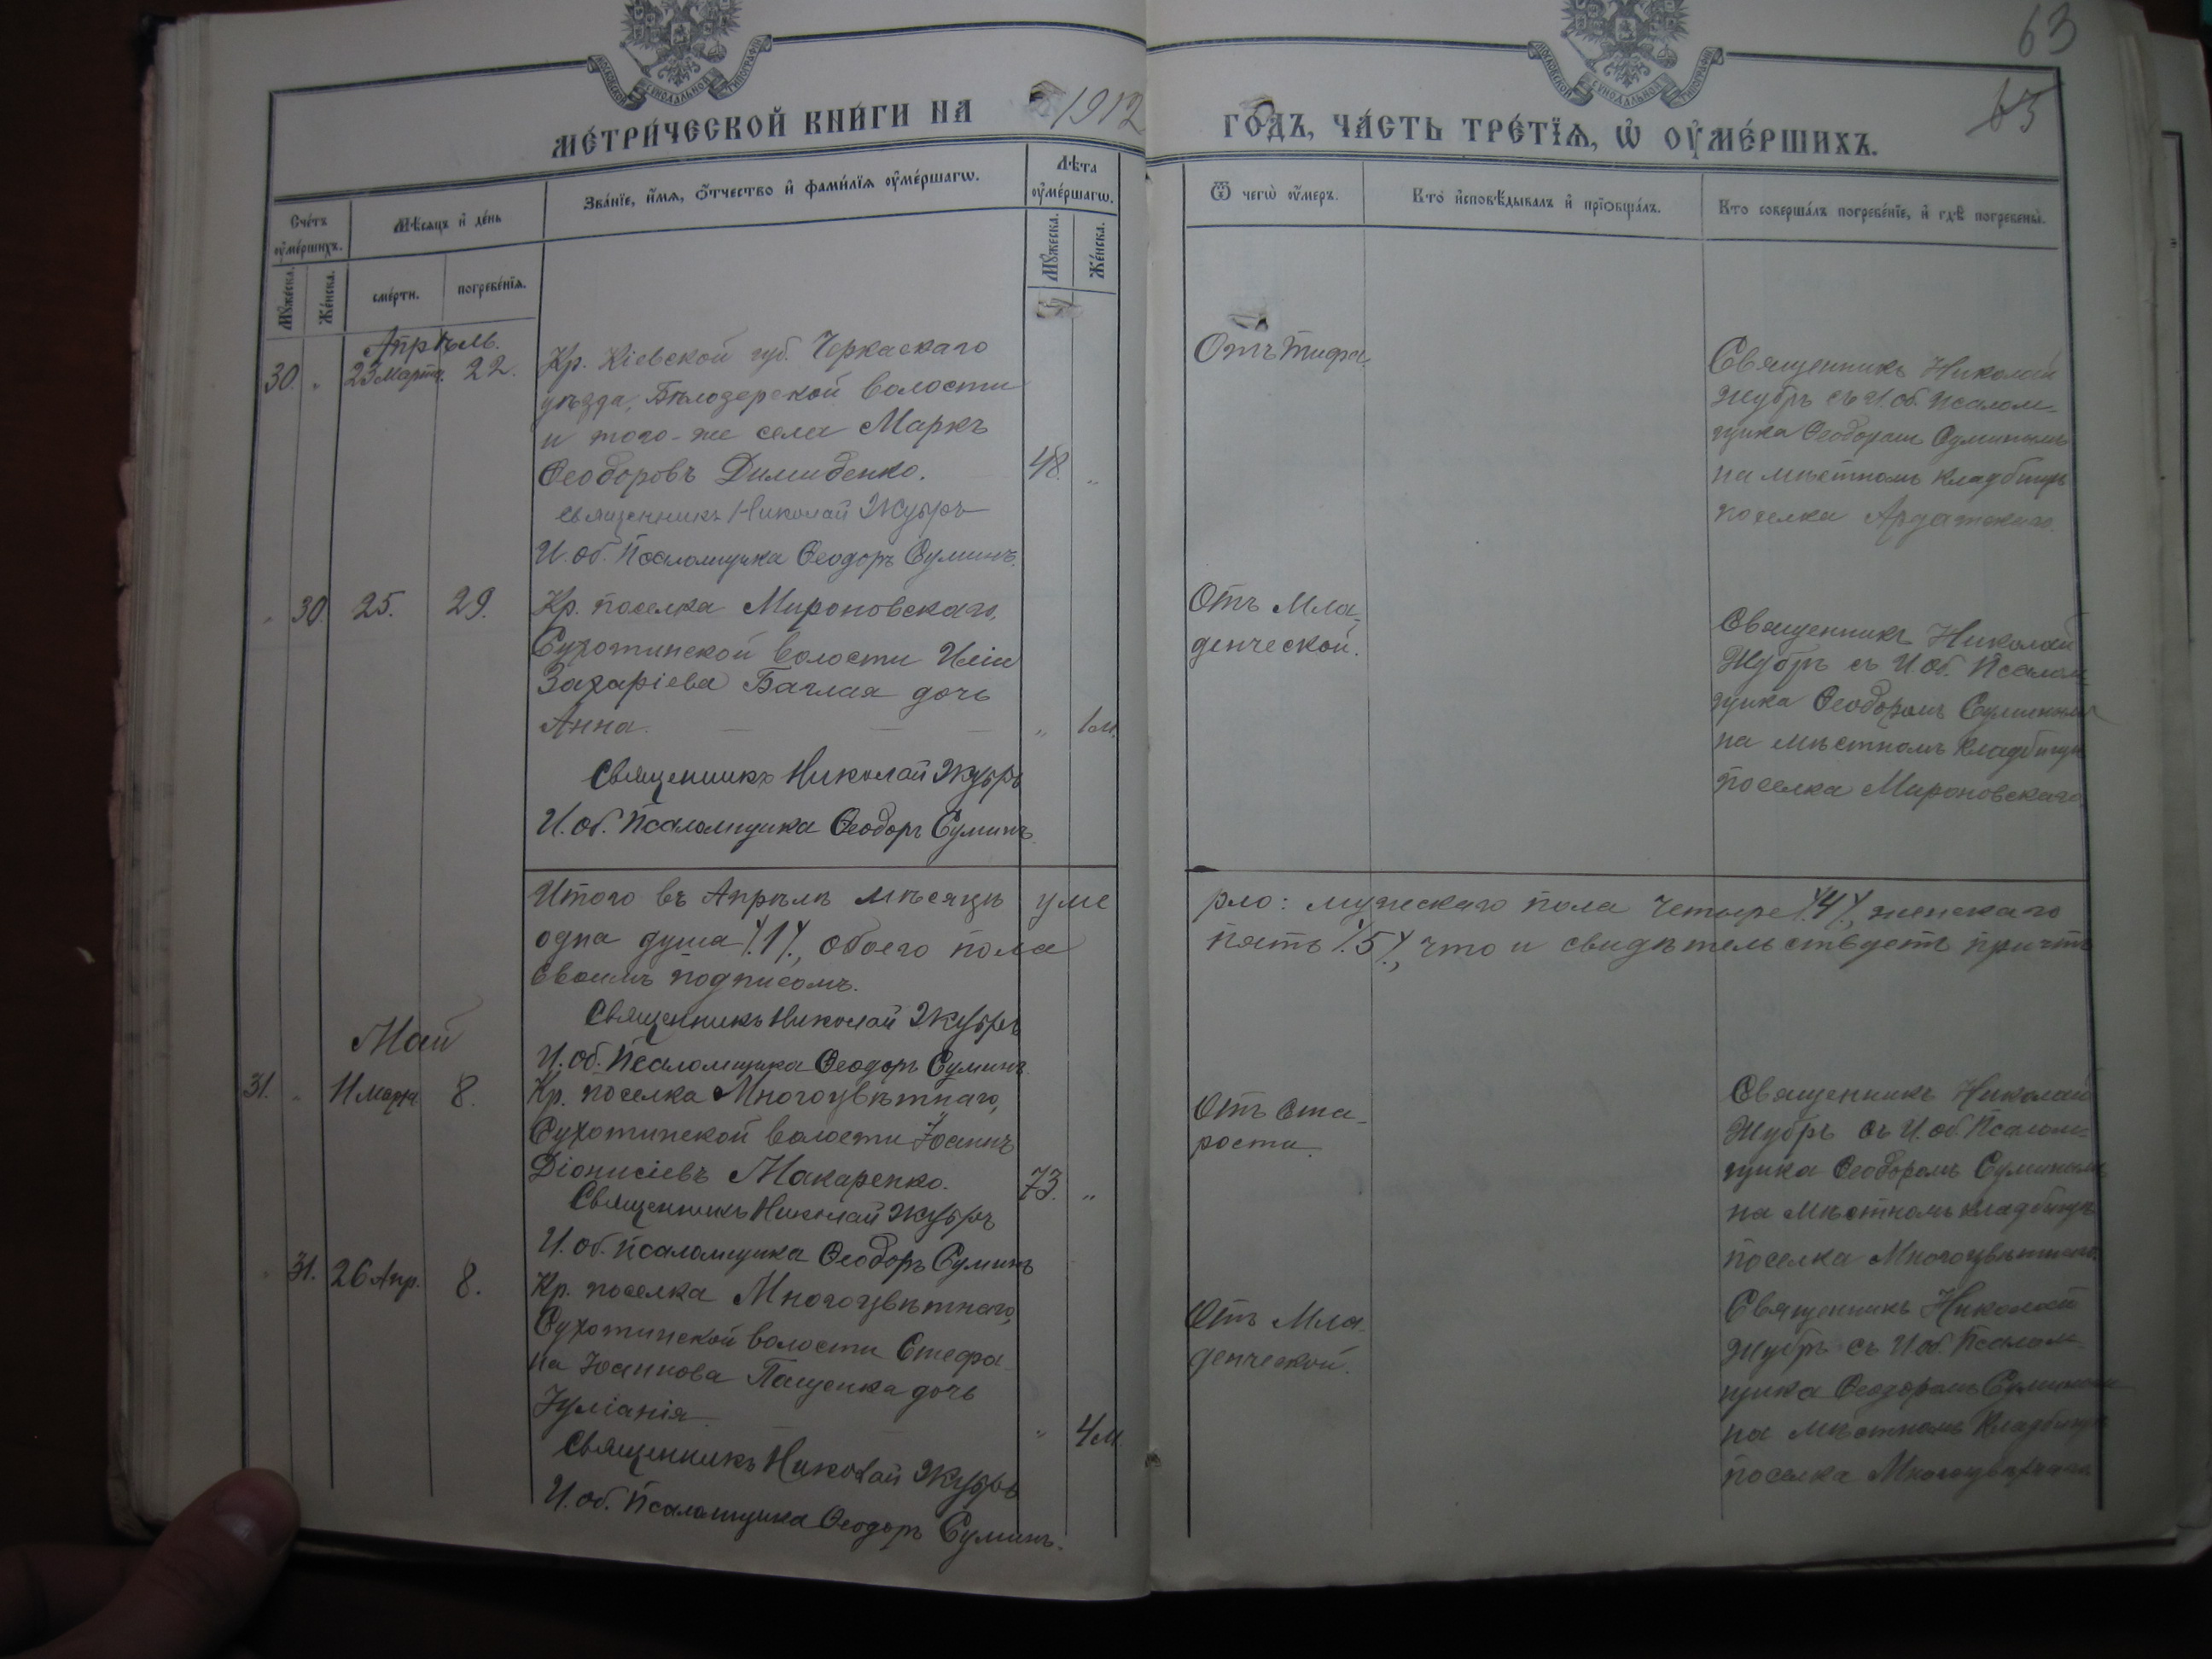 МОСКОВСКОЙ СѴНОДАЛЬНОЙ ТИПОГРАФІИ
МОСКОВСКОЙ СѴНОДАЛЬНОЙ ТИПОГРАФІИ
63
63
МЕТРИ́ЧЕСКОЙ КНИ́ГИ НА 1912
ГО́ДЪ, ЧА́СТЬ ТРЕ́ТЇѦ, Ѡ҆ ОУ҆МЕ́РШИХЪ.
Сче́тъ оу҆ме́ршихъ.
Мѣ́сяцъ и҆ де́нь
Зва́нїе, и҆́мѧ, ѻ҆́тчество и҆ фами́лїѧ оу҆ме́ршагѡ.
Лѣ́та оу҆ме́ршагѡ.
Ѿ чегѡ̀ оу҆́меръ.
Кто̀ и҆сповѣ́дывалъ и҆ прїѡбща́лъ.
Кто соверша́лъ погребе́нїе, и҆ гдѣ̀ погребены̀.
Мꙋ́жеска.
Же́нска.
сме́рти.
погребе́нїѧ.
Мꙋ́жеска.
Же́нска.
Апрѣль.
30. „ 23 Марта. 22. Кр. Кіевской губ. Черкаскаго
уѣзда, Бѣлозерской волости
и того-же села Маркъ
Ѳеодоровъ Димиденко. 48. „
Священникъ Николай Жубръ
И. об. Псаломщика Ѳеодоръ Суминъ.
Отъ тифа.
Священникъ Николай
Жубръ съ И. об. Псалом-
щика Ѳеодоромъ Суминымъ
на мѣстномъ кладбищѣ
поселка Ардатскаго.
„ 30. 25. 29. Кр. поселка Мироновскаго,
Сухотинской волости Иліи
Захаріева Баглая дочь
Анна. „ 1 м.
Священникъ Николай Жубръ
И. об. Псаломщика Ѳеодоръ Суминъ.
Отъ Мла-
денческой.
Священникъ Николай
Жубръ съ И. об. Псалом
щика Ѳеодоромъ Суминымъ
на мѣстномъ кладбищѣ
поселка Мироновскаго.
Итого въ Апрѣлѣ мѣсяцѣ уме
рло: мужескаго пола четыре ⁒4⁒, женскаго
одна душа ⁒1⁒, обоего пола
пять ⁒5⁒, что и свидѣтельствуетъ причтъ
своимъ подписомъ.
Священникъ Николай Жубръ
И. об. Псаломщика Ѳеодоръ Суминъ
Май
31. „ 11 марта 8. Кр. поселка Многоцвѣтнаго,
Сухотинской волости Іоаннъ
Діонисіевъ Макаренко. 73. „
Священникъ Николай Жубръ
И. об. Псаломщика Ѳеодоръ Суминъ
Отъ Ста-
рости.
Священникъ Николай
Жубръ съ И. об. Псалом-
щика Ѳеодоромъ Суминымъ
на мѣстномъ кладбищѣ
поселка Многоцвѣтнаго.
„ 31. 26 Апр. 8. Кр. поселка Многоцвѣтнаго,
Сухотинской волости Стефа-
на Іоаннова Пащенка дочь
Іуліанія. „ 4 м.
Священникъ Николай Жубръ
И. об. Псаломщика Ѳеодоръ Суминъ.
Отъ Мла-
денческой.
Священникъ Николай
Жубръ съ И об. Псалом-
щика Ѳеодоромъ Суминымъ
на мѣстномъ кладбищѣ
поселка Многоцвѣтнаго